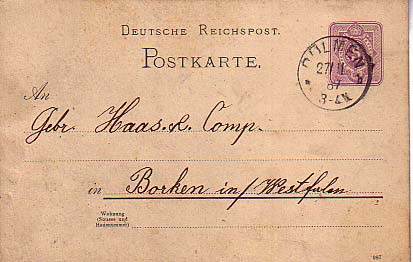 DEUTSCHE REICHSPOST.
POSTKARTE.
DÜLMEN
27/11
87
3-4N
An
Gebr. Haas & Comp.
in Borken in/Westfalen
Wohnung
(Strasse und
Hausnummer)